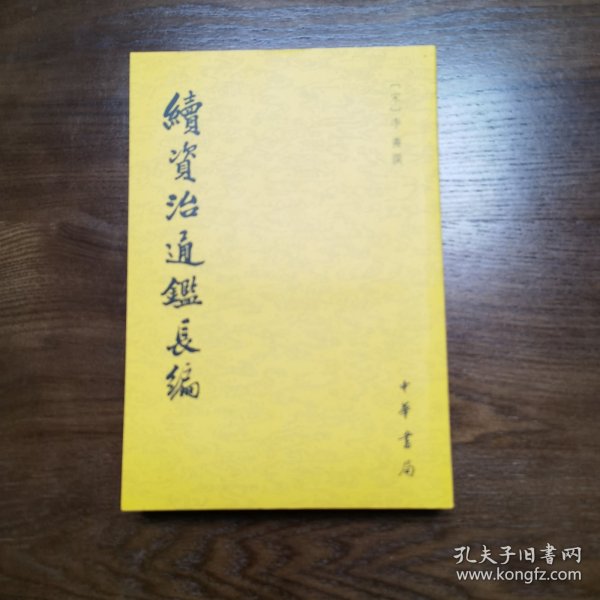 [宋]李燾撰
續資治通鑑長編
中華書局
孔夫子旧書网
www.kongfz.com